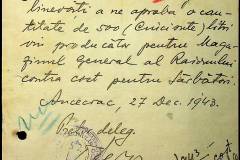 linerosti a ne aproba o can-
titate de 500 (Cincisute) litri
vin producător pentru Maga-
zinul General al Raionului
contra cost pentru Sărbători.
Ancecrac, 27 Dec. 1943.
deleg.